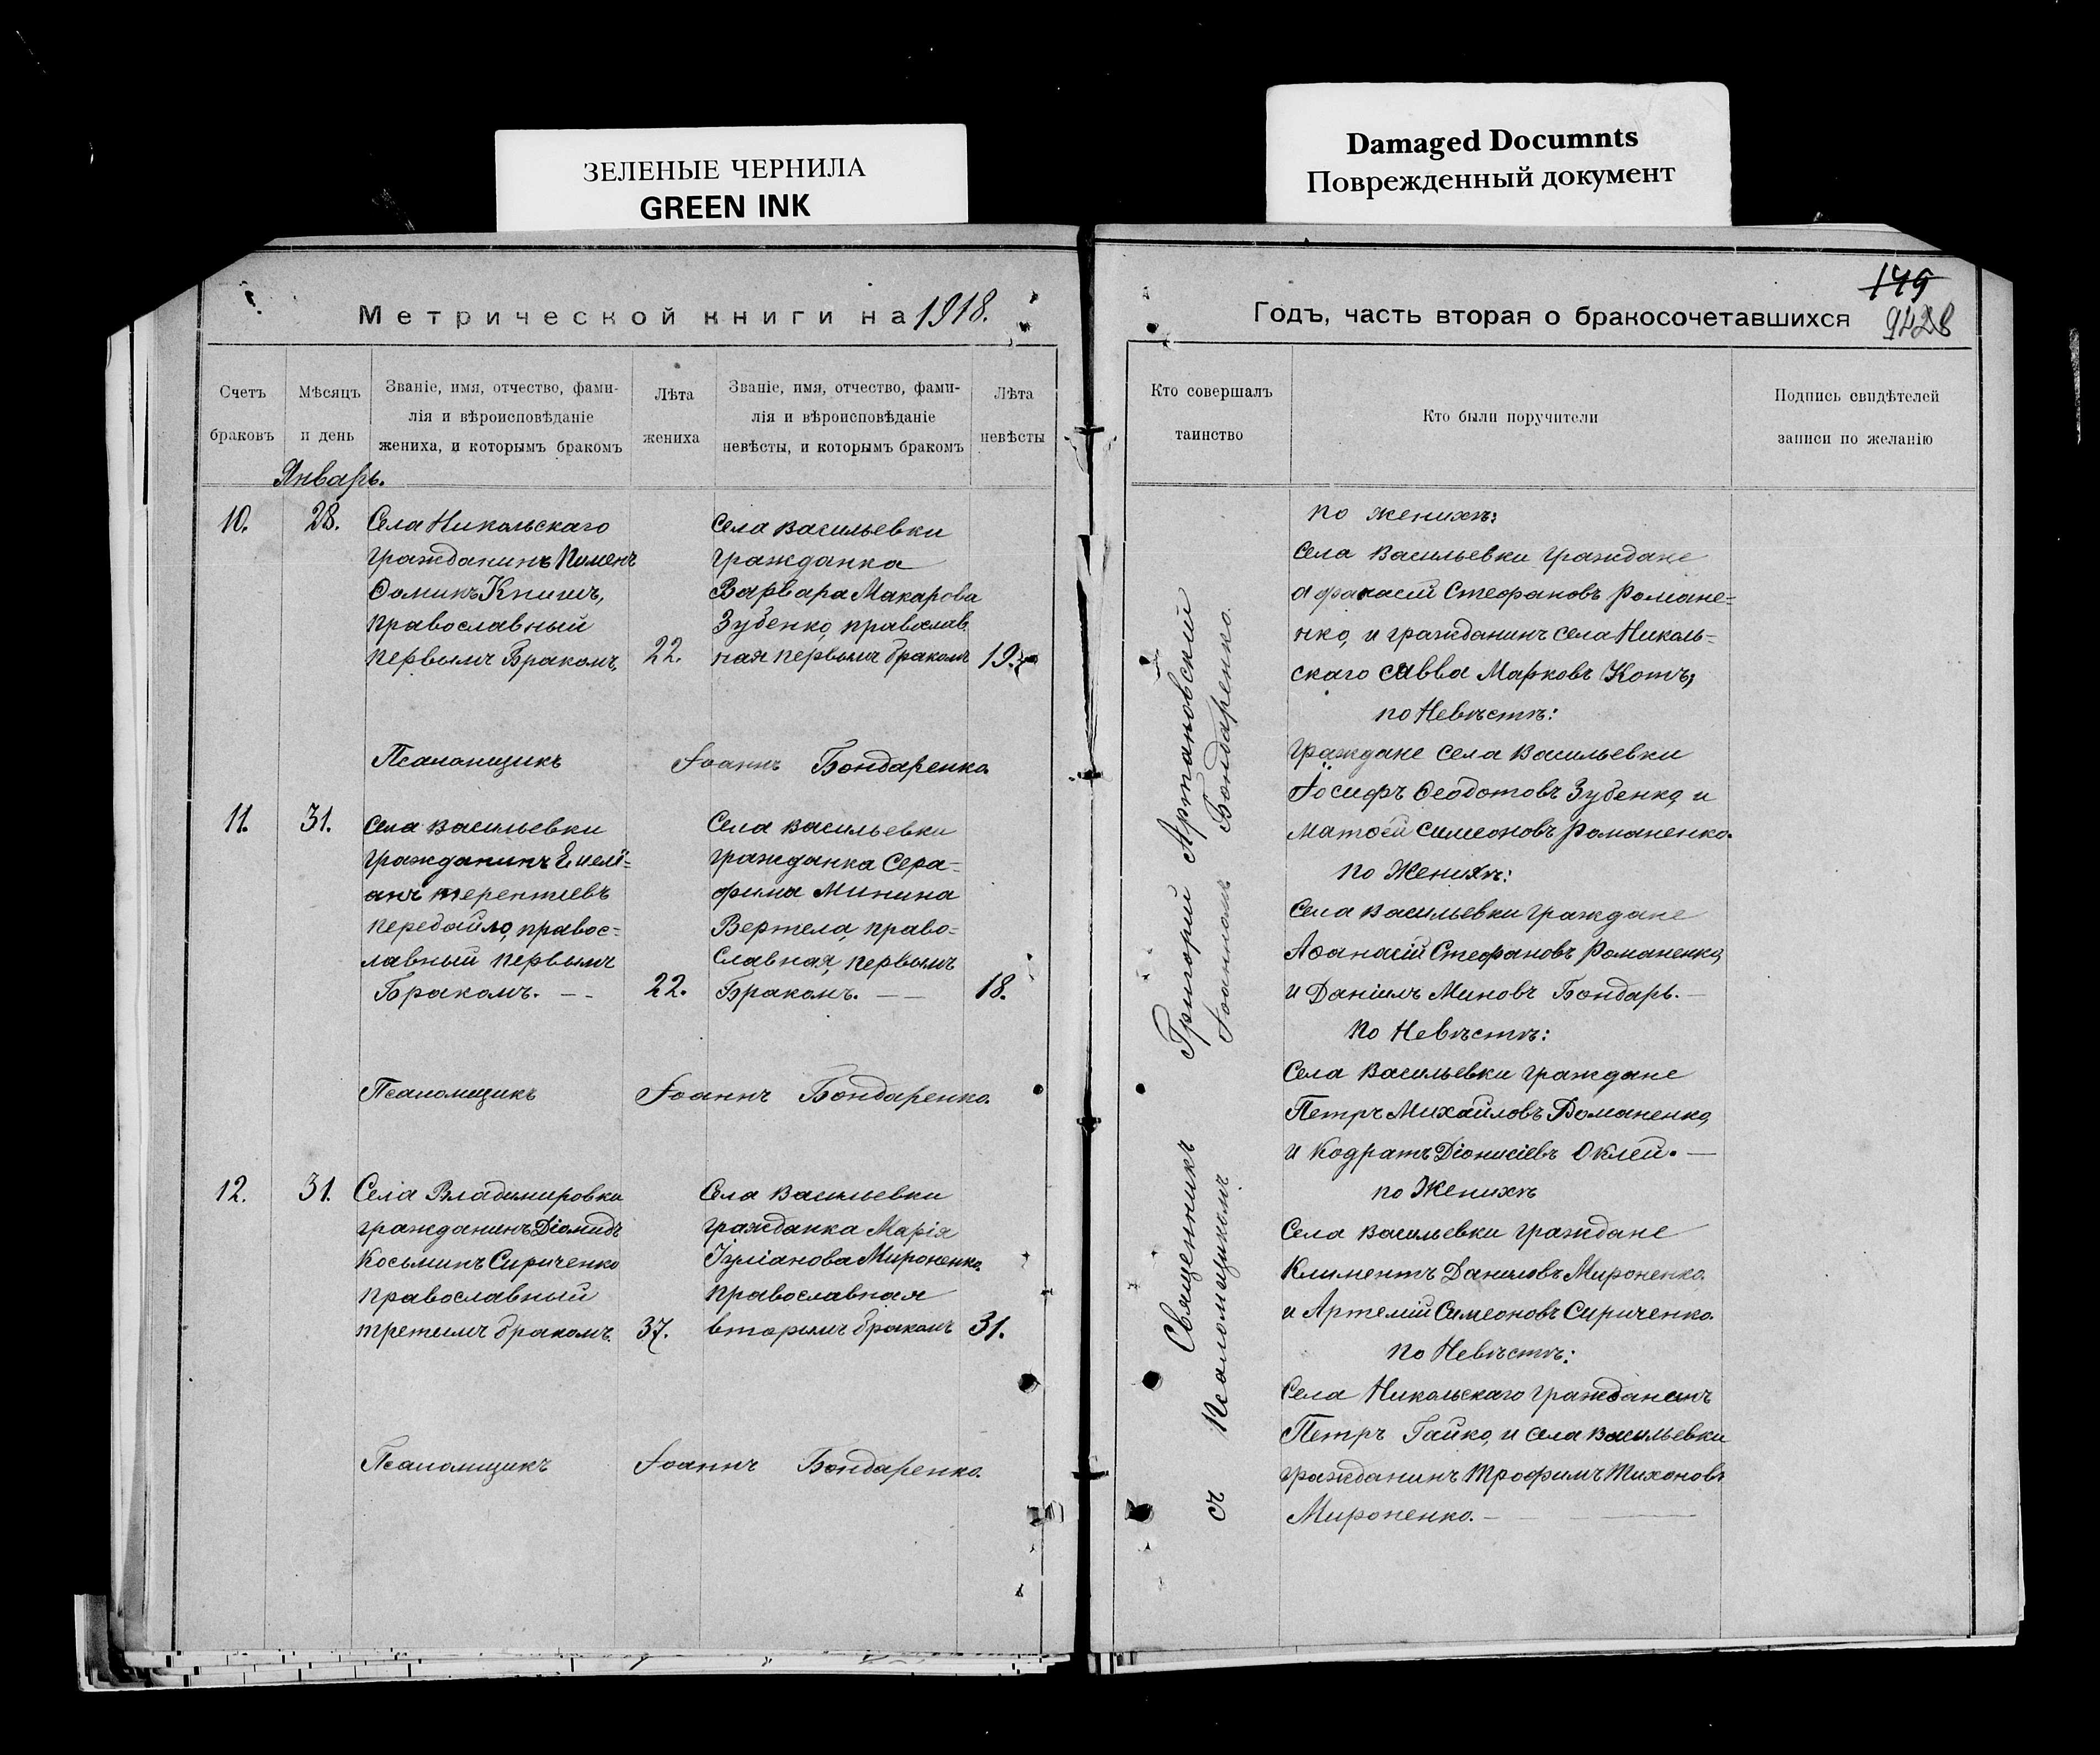 ЗЕЛЕНЫЕ ЧЕРНИЛА
GREEN INK
Damaged Documnts
Поврежденный документ
Метрической книги на 1918.
Счетъ браковъ
Мѣсяцъ и день
Званіе, имя, отчество, фами-
лія и вѣроисповѣданіе
жениха, и которымъ бракомъ
Лѣта жениха
Званіе, имя, отчество, фами-
лія и вѣроисповѣданіе
невѣсты, и которымъ бракомъ
Лѣта невѣсты
Январь.
10.
28.
Села Никольскаго
гражданинъ Пименъ
Ѳоминъ Книшъ,
православный
первымъ Бракомъ,
22.
Села Васильевки
гражданка
Варвара Макарова
Зубенко, православ
ная первымъ бракомъ
19.
Псаломщикъ Іоаннъ Бондаренко.
11.
31.
Села Васильевки
гражданинъ Емелі-
анъ терентіевъ
Передайло, правос-
лавный первымъ
Бракомъ. - -
22.
Села Васильевки
гражданка Сера-
фима Минина
Вертела, право-
Славная, первымъ
Бракомъ. — —
18.
Псаломщикъ Іоаннъ Бондаренко.
12.
31.
Села Владимировки
гражданинъ Діомидъ
Косьминъ Сириченко
православный
третьимъ бракомъ.
37.
Села Васильевки
гражданка Марія
Іуліанова Мироненко,
православная
вторымъ бракомъ
31.
Псаломщикъ Іоаннъ Бондаренко.
149
9428
Годъ, часть вторая о бракосочетавшихся
Кто совершалъ
таинство
Кто были поручители
Подпись свидѣтелей
записи по желанію
Священникъ Григорій Артановскій
съ Псаломщикомъ Іоанномъ Бондаренко.
по женихѣ:
Села Васильевки граждане
Афанасій Стефановъ Романе-
нко, и гражданинъ села Николь-
скаго Савва Марковъ Котъ,
по Невѣстѣ:
Граждане села Васильевки
Іосифъ Ѳеодотовъ Зубенко, и
Матѳей Симеоновъ Романенко.
по Женихѣ:
Села Васильевки граждане
Аѳанасій Стефановъ Романенко,
и Даніилъ Миновъ Бондарь. —
По Невѣстѣ:
Села Васильевки граждане
Петръ Михайловъ Романенко,
и Кодратъ Діонисіевъ Оклей. —
по Женихѣ
Села Васильевки граждане
Климентъ Даниловъ Мироненко,
и Артемій Симеоновъ Сириченко.
По Невѣстѣ:
Села Никольскаго гражданинъ
Петръ Гайко, и села Васильевки
гражданинъ Трофимъ Тихоновъ
Мироненко. —